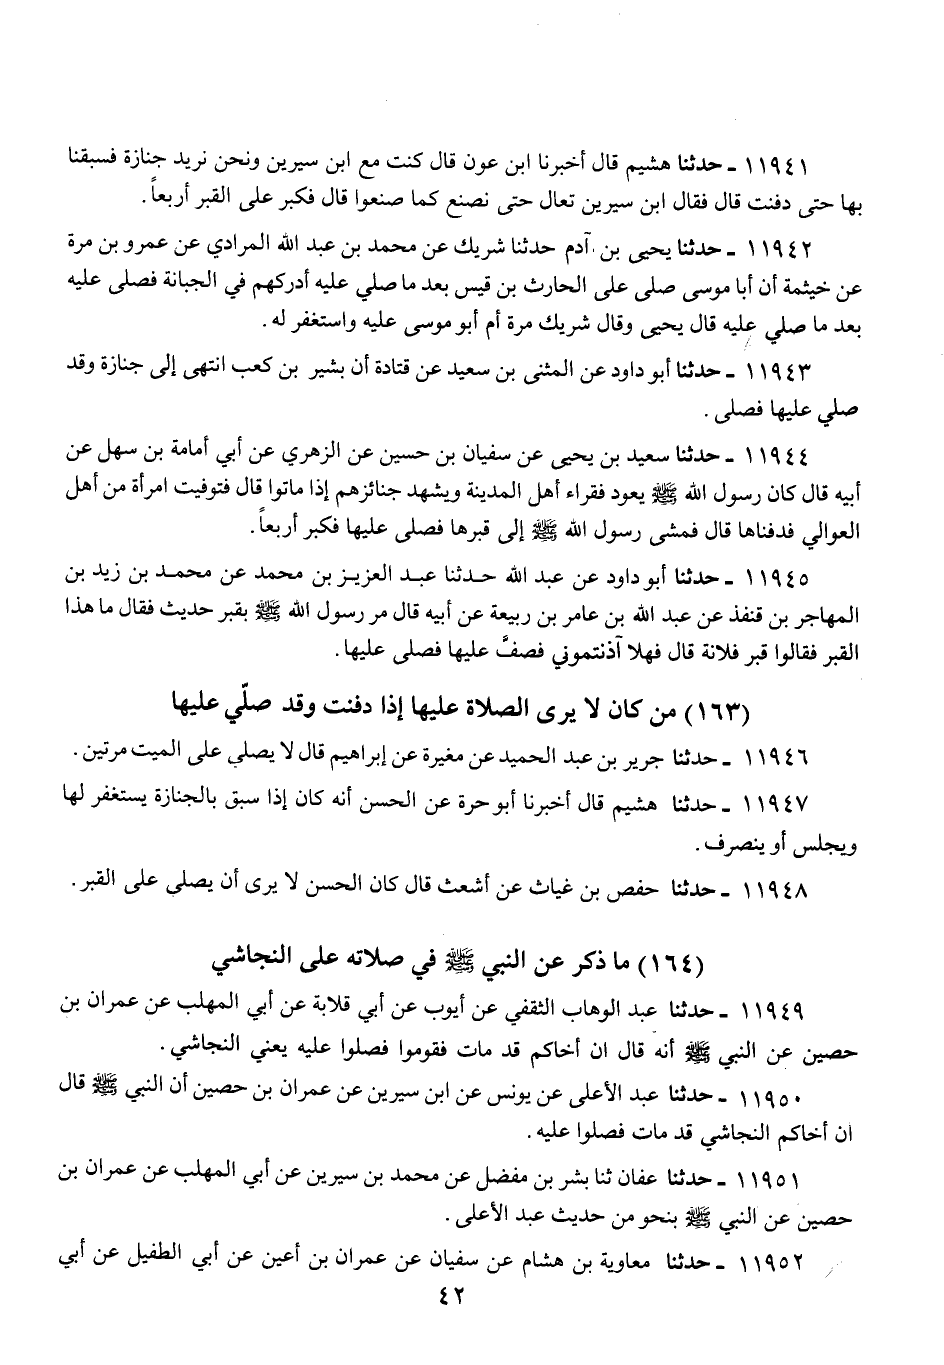 ١١٩٤١ - حدثنا هشيم قال أخبرنا ابن عون قال كنت مع ابن سيرين ونحن نريد جنازة فسبقنا
بها حتى دفنت قال فقال ابن سيرين تعال حتى نصنع كما صنعوا قال فكبر على القبر أربعاً.
١١٩٤٢ - حدثنا يحيى بن آدم حدثنا شريك عن محمد بن عبد الله المرادي عن عمرو بن مرة
عن خيثمة أن أبا موسى صلى على الحارث بن قيس بعد ما صلي عليه أدركهم في الجبانة فصلى عليه
بعد ما صلي عليه قال يحيى وقال شريك مرة أم أبو موسى عليه واستغفر له.
١١٩٤٣ - حدثنا أبو داود عن المثنى بن سعيد عن قتادة أن بشير بن كعب انتهى إلى جنازة وقد
صلي عليها فصلى.
١١٩٤٤ - حدثنا سعيد بن يحيى عن سفيان بن حسين عن الزهري عن أبي أمامة بن سهل عن
أبيه قال كان رسول الله ﷺ يعود فقراء أهل المدينة ويشهد جنائزهم إذا ماتوا قال فتوفيت امرأة من أهل
العوالي فدفناها قال فمشى رسول الله ﷺ إلى قبرها فصلى عليها فكبر أربعاً.
١١٩٤٥ - حدثنا أبو داود عن عبد الله حدثنا عبد العزيز بن محمد عن محمد بن زيد بن
المهاجر بن قنفذ عن عبد الله بن عامر بن ربيعة عن أبيه قال مر رسول الله ﷺ بقبر حديث فقال ما هذا
القبر فقالوا قبر فلانة قال فهلا آذنتموني فصفَّ عليها فصلى عليها.
(١٦٣) من كان لا يرى الصلاة عليها إذا دفنت وقد صلّي عليها
١١٩٤٦ - حدثنا جرير بن عبد الحميد عن مغيرة عن إبراهيم قال لا يصلي على الميت مرتين.
١١٩٤٧ - حدثنا هشيم قال أخبرنا أبو حرة عن الحسن أنه كان إذا سبق بالجنازة يستغفر لها
ويجلس أو ينصرف.
١١٩٤٨ - حدثنا حفص بن غياث عن أشعث قال كان الحسن لا يرى أن يصلى على القبر.
(١٦٤) ما ذكر عن النبي ﷺ في صلاته على النجاشي
١١٩٤٩ - حدثنا عبد الوهاب الثقفي عن أيوب عن أبي قلابة عن أبي المهلب عن عمران بن
حصين عن النبي ﷺ أنه قال ان أخاكم قد مات فقوموا فصلوا عليه يعني النجاشي.
١١٩٥٠ - حدثنا عبد الأعلى عن يونس عن ابن سيرين عن عمران بن حصين أن النبي ﷺ قال
ان أخاكم النجاشي قد مات فصلوا عليه.
١١٩٥١ - حدثنا عفان ثنا بشر بن مفضل عن محمد بن سيرين عن أبي المهلب عن عمران بن
حصين عن النبي ﷺ بنحو من حديث عبد الأعلى.
١١٩٥٢ - حدثنا معاوية بن هشام عن سفيان عن عمران بن أعين عن أبي الطفيل عن أبي
٤٢